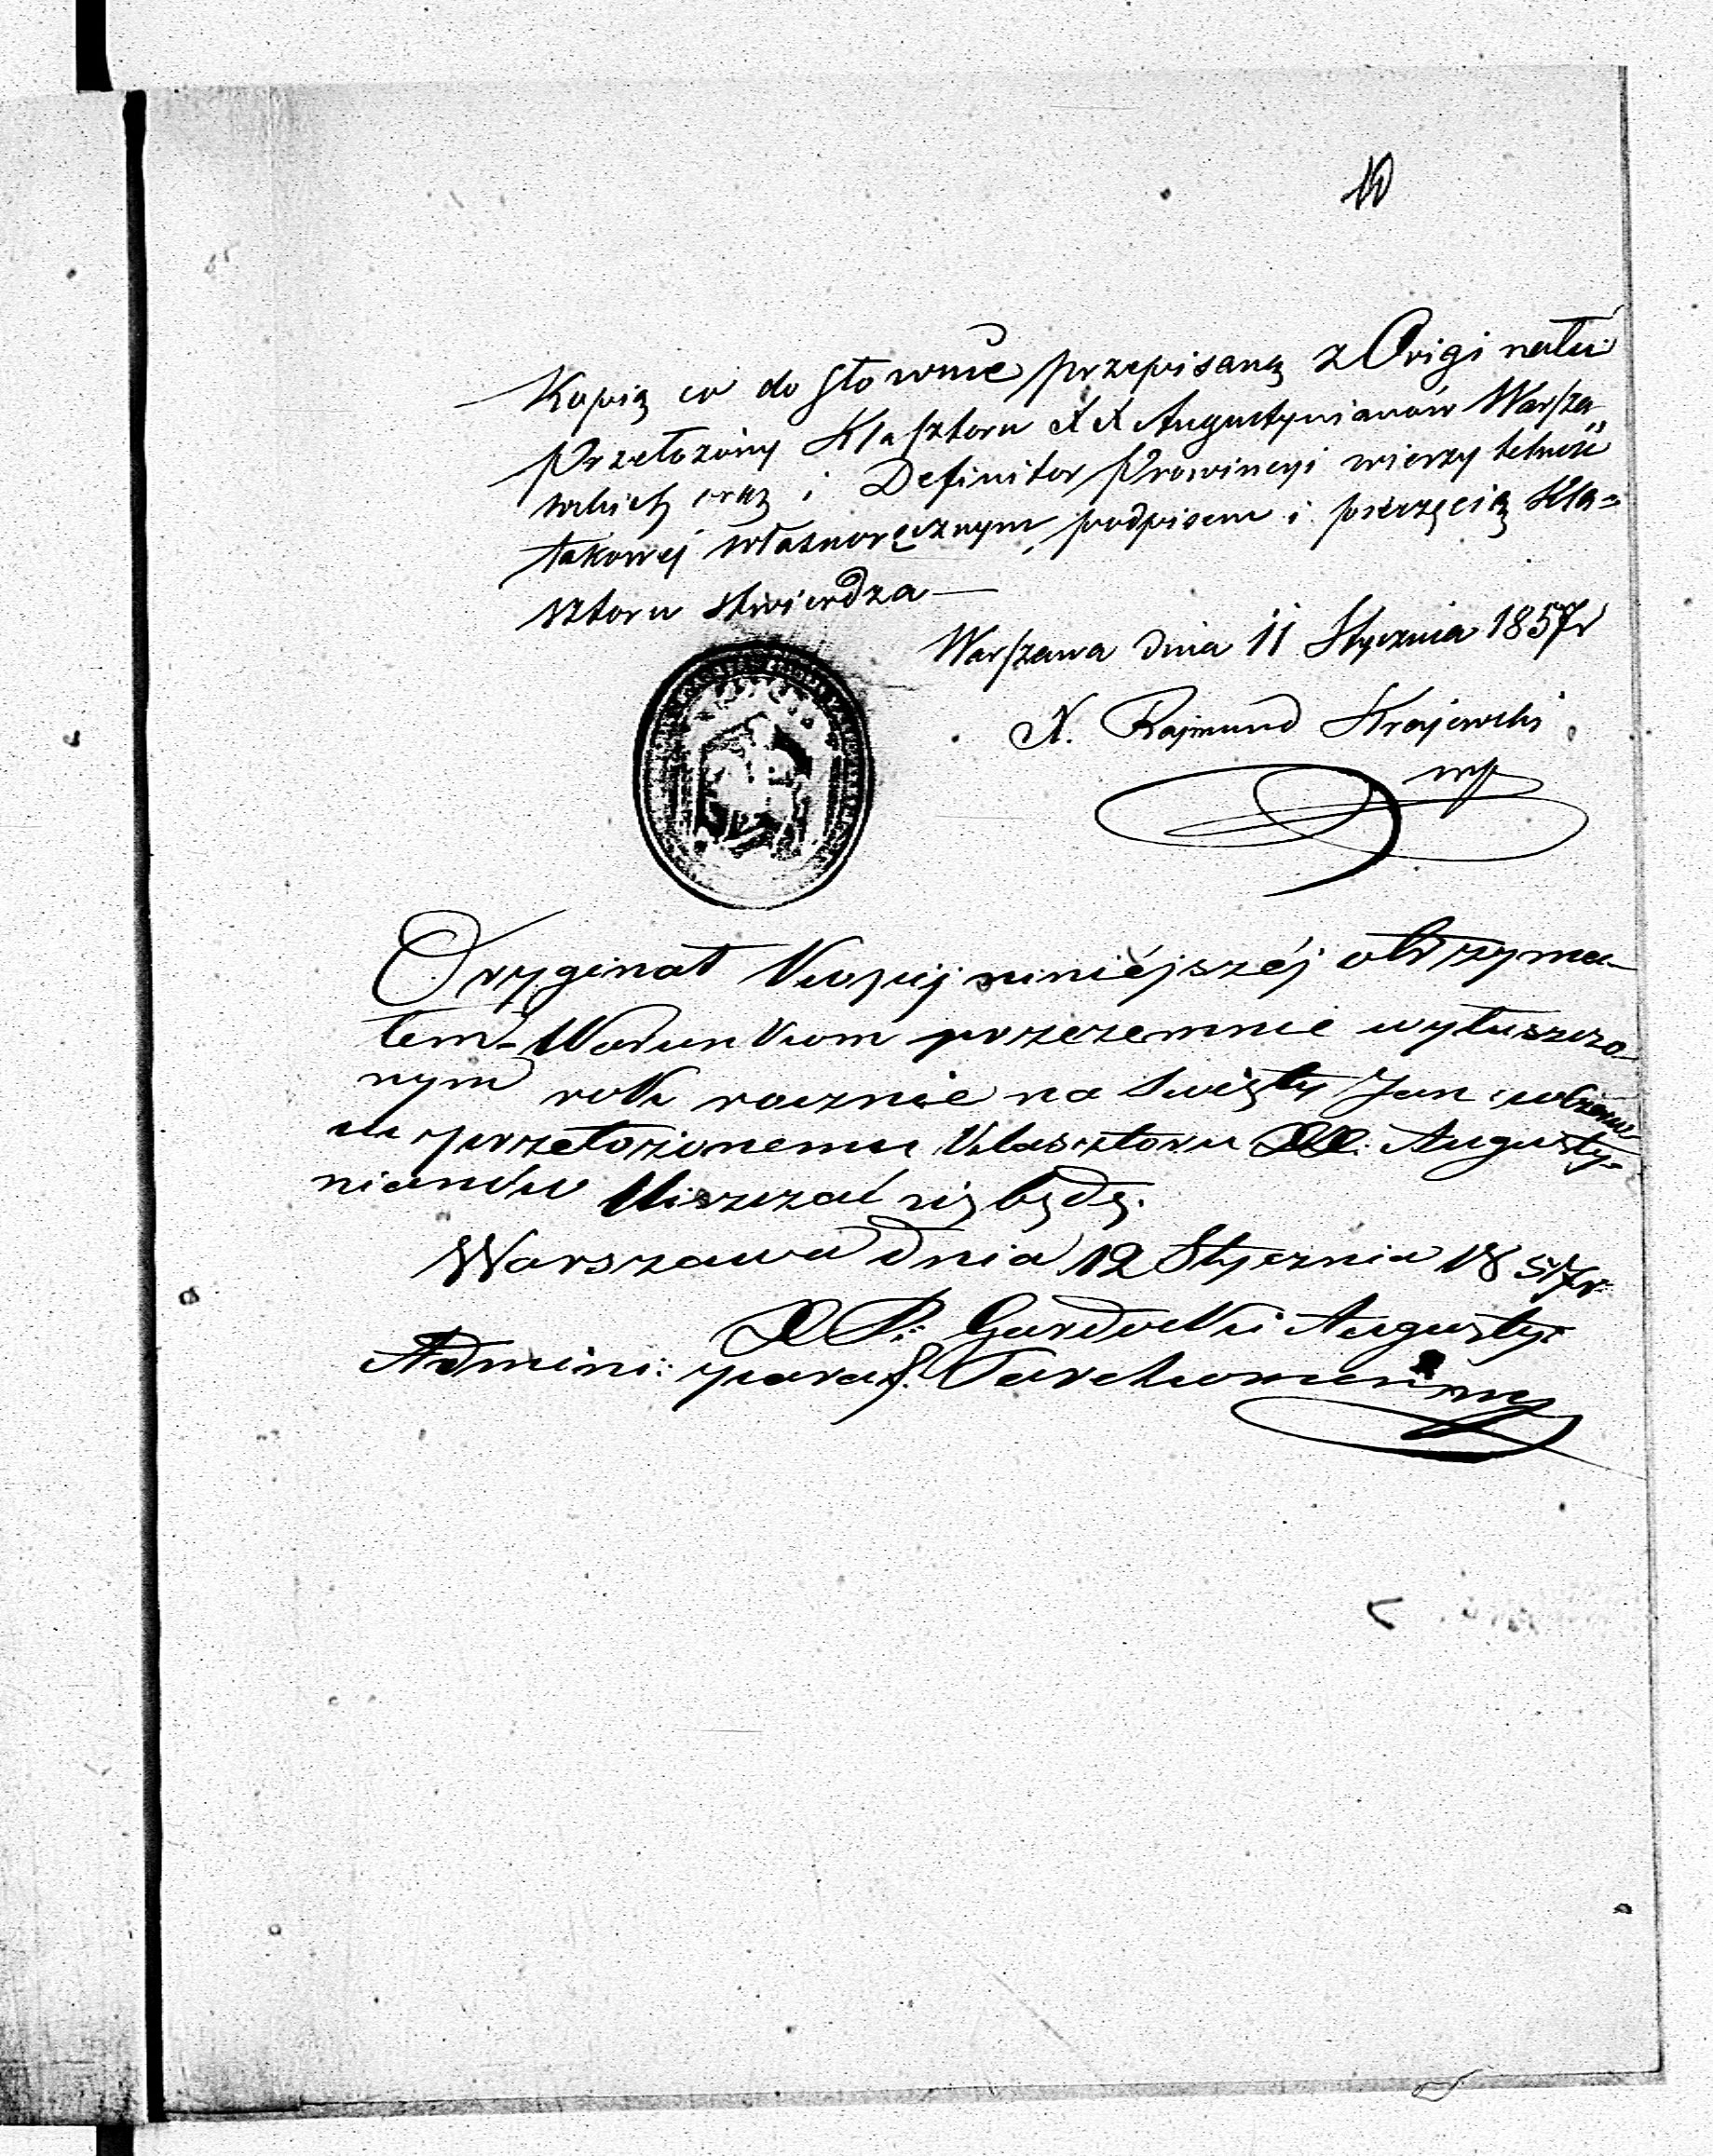 10
Kopią co do słownie przepisaną z Originału
Przełożony Klasztoru XX Augustynianów Warsza
wskich oraz i Definitor Prowincyi wierzytelność
takowej własnoręcznym podpisem i pieczęcią Kla=
sztoru stwierdza —
Warszawa dnia 11 Stycznia 1857 r
X. Rajmund Krajewski
mp
Oryginał Kopij niniéjszéj otrzyma-
łem - Warunkom przezemnie wyłuszczo-
nym rok rocznie na Swięty Jan
u przełożonemu Klasztoru XX. Augusty-
nianów Uiszczać się będę.
Warszawa dnia 12 Stycznia 1857 r.
X P: Gardocki Augusty:
Admini: paraf. Tarchomin